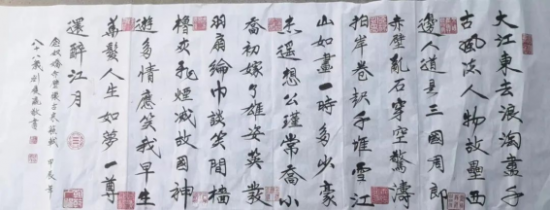 大江東去浪淘盡千
古風流人物故壘西
邊人道是三國周郎
赤壁亂石穿空驚濤
拍岸卷起千堆雪江
山如畫一時多少豪
杰遥想公瑾當年小
喬初嫁了雄姿英發
羽扇綸巾談笑間檣
櫓灰飛煙滅故國神
遊多情應笑我早生
華髮人生如夢一尊
還酹江月
念奴嬌赤壁懷古 蘇軾詞 甲辰年